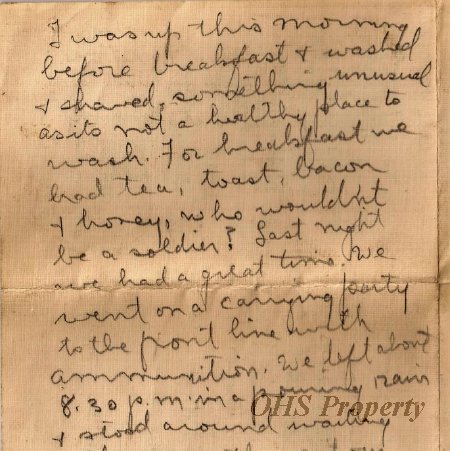 I was up this morning
before breakfast & washed
& shaved, something unusual
as its not a healthy place to
wash. For breakfast we
had tea, toast, bacon
& honey, who wouldn't
be a soldier? Last night
we had a great time. We
went on a carrying party
to the front line with
ammunition. We left about
8.30 p.m. in a pouring rain
& stood around waiting
OHS Property